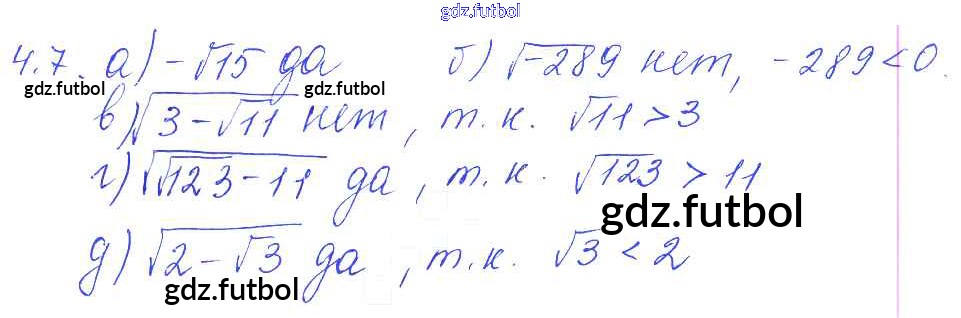 gdz.futbol
4.7. а) -√15 да б) √-289 нет, -289<0.
gdz.futbol gdz.futbol
в) √3-√11 нет, т.к. √11>3
г) √√123-11 да, т.к. √123 > 11
gdz.futbol
д) √2-√3 да, т.к. √3 < 2
gdz.futbol